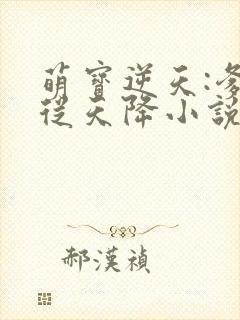 萌寶逆天:
從天降小說
郝漢禎